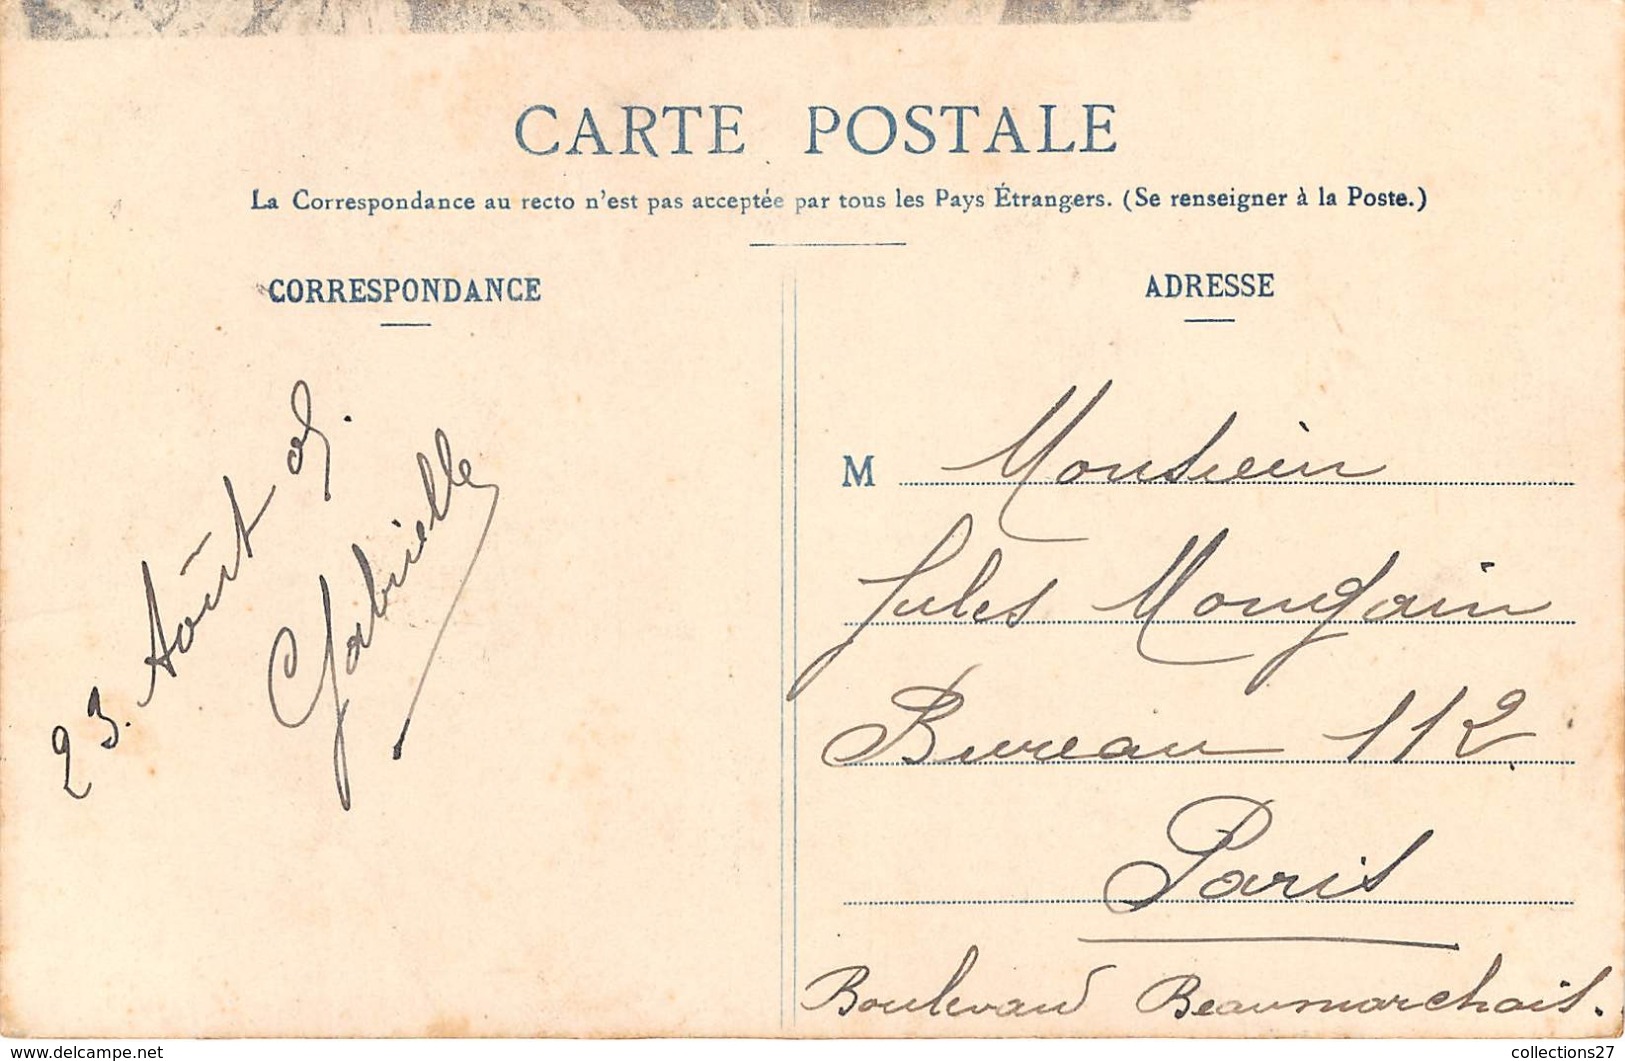 CARTE POSTALE
La Correspondance au recto n'est pas acceptée par tous les Pays Étrangers. (Se renseigner à la Poste.)
CORRESPONDANCE
23. Août 05.
Gabrielle
ADRESSE
M Monsieur
Jules Mougain
Bureau 112.
Paris
Boulevard Beaumarchais.
delcampe.net
collections27